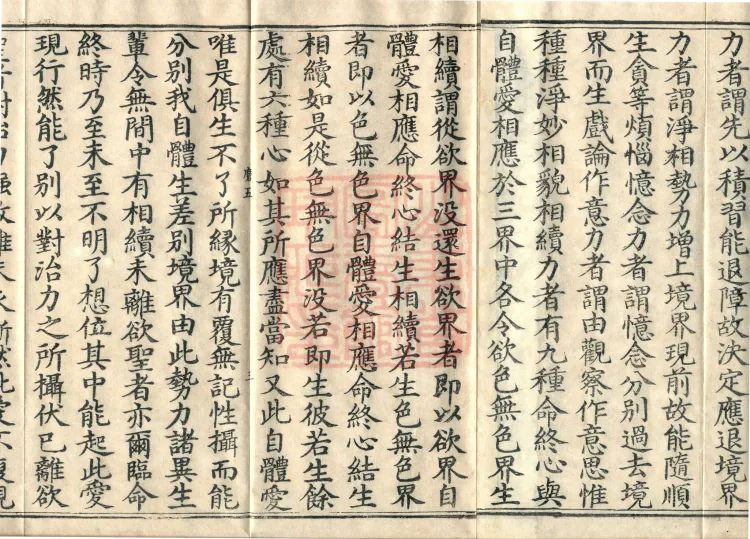 力者謂先以積習能退障故決定應退境界
力者謂淨相勢力增上境界現前故能隨順
生貪等煩惱憶念力者謂憶念分別過去境
界而生戲論作意力者謂由觀察作意思惟
種種淨妙相貌相續力者有九種命終心與
自體愛相應於三界中各令欲色無色界生
相續謂從欲界没還生欲界者即以欲界自
體愛相應命終心結生相續若生色無色界
者即以色無色界自體愛相應命終心結生
相續如是從色無色界没若即生彼若生餘
處有六種心如其所應盡當知又此自體愛
唯是俱生不了所縁境有覆無記性攝而能
分別我自體生差別境界由此勢力諸異生
輩令無間中有相續未離欲聖者亦爾臨命
終時乃至未至不明了想位其中能起此愛
現行然能了別以對治力之所攝伏已離欲